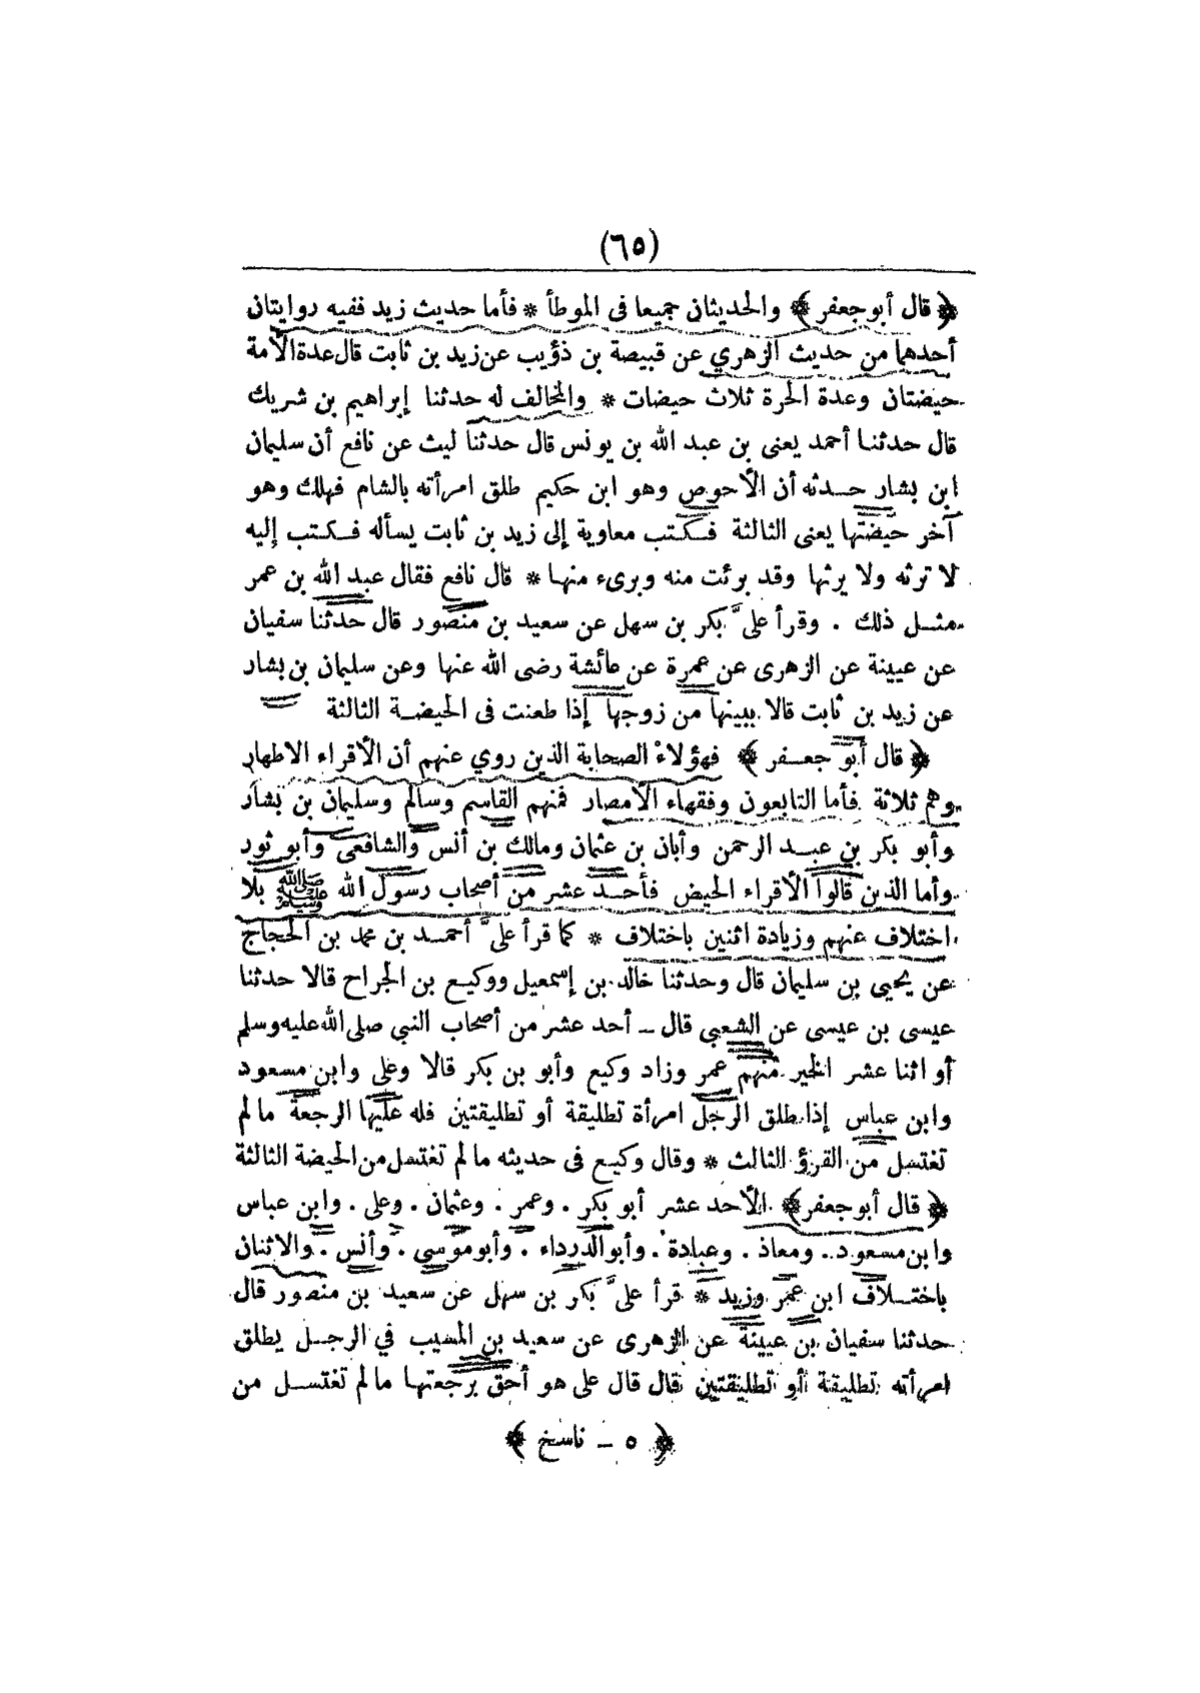 (٦٥)
﴿ قال أبو جعفر ﴾ والحديثان جميعا فى الموطأ * فأما حديث زيد ففيه روايتان
أحدهما من حديث الزهري عن قبيصة بن ذؤيب عن زيد بن ثابت قال عدة الأمة
حيضتان وعدة الحرة ثلاث حيضات * والمخالف له حدثنا إبراهيم بن شريك
قال حدثنا أحمد يعنى بن عبد الله بن يونس قال حدثنا ليث عن نافع أن سليمان
ابن بشار حدثه أن الأحوص وهو ابن حكيم طلق امرأته بالشام فهلك وهو
آخر حيضتها يعنى الثالثة فكتب معاوية إلى زيد بن ثابت يسأله فكتب إليه
لا ترثه ولا يرثها وقد برئت منه وبرىء منها * قال نافع فقال عبد الله بن عمر
مثل ذلك . وقرأ علىَّ بكر بن سهل عن سعيد بن منصور قال حدثنا سفيان
عن عيينة عن الزهرى عن عمرة عن عائشة رضى الله عنها وعن سليمان بن بشار
عن زيد بن ثابت قالا يبينها من زوجها إذا طعنت فى الحيضة الثالثة
﴿ قال أبو جعفر ﴾ فهؤلاء الصحابة الذين روي عنهم أن الأقراء الاطهار
وهم ثلاثة فأما التابعون وفقهاء الأمصار فمنهم القاسم وسالم وسليمان بن بشار
وأبو بكر بن عبد الرحمن وأبان بن عثمان ومالك بن أنس والشافعى وأبو ثور
وأما الذين قالوا الأقراء الحيض فأحد عشر من أصحاب رسول الله ﷺ بلا
اختلاف عنهم وزيادة اثنين باختلاف * كما قرأ علىَّ أحمد بن محمد بن الحجاج
عن يحيى بن سليمان قال وحدثنا خالد بن إسمعيل ووكيع بن الجراح قالا حدثنا
عيسى بن عيسى عن الشعبي قال ــ أحد عشر من أصحاب النبي صلى الله عليه وسلم
أو اثنا عشر الخير منهم عمر وزاد وكيع وأبو بن بكر قالا وعلى وابن مسعود
وابن عباس إذا طلق الرجل امرأة تطليقة أو تطليقتين فله عليها الرجعة ما لم
تغتسل من القرؤ الثالث * وقال وكيع فى حديثه ما لم تغتسل من الحيضة الثالثة
﴿ قال أبو جعفر ﴾ الأحد عشر أبو بكر . وعمر . وعثمان . وعلى . وابن عباس
وابن مسعود . ومعاذ . وعبادة . وأبو الدرداء . وأبو موسي . وأنس . والاثنان
باختلاف ابن عمر وزيد * قرأ علىَّ بكر بن سهل عن سعيد بن منصور قال
حدثنا سفيان بن عيينة عن الزهرى عن سعيد بن المسيب في الرجل يطلق
امرأته تطليقة أو تطليقتين قال قال على هو أحق برجعتها ما لم تغتسل من
﴿ ٥ ــ ناسخ ﴾